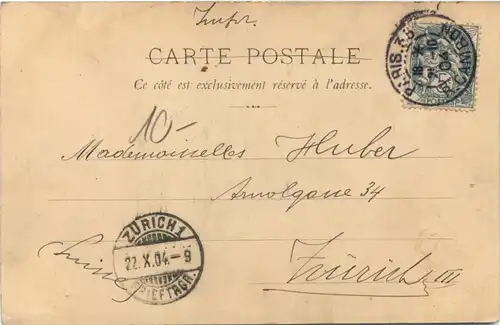 Impr.
CARTE POSTALE
Ce côté est exclusivement réservé à l'adresse.
PARIS.38
CAMBON
10-
Mademoiselles Huber
Arnolgasse 34
ZÜRICH 1
22.X.04.-9
BRIEFTRGR.
Suisse
Zürich III